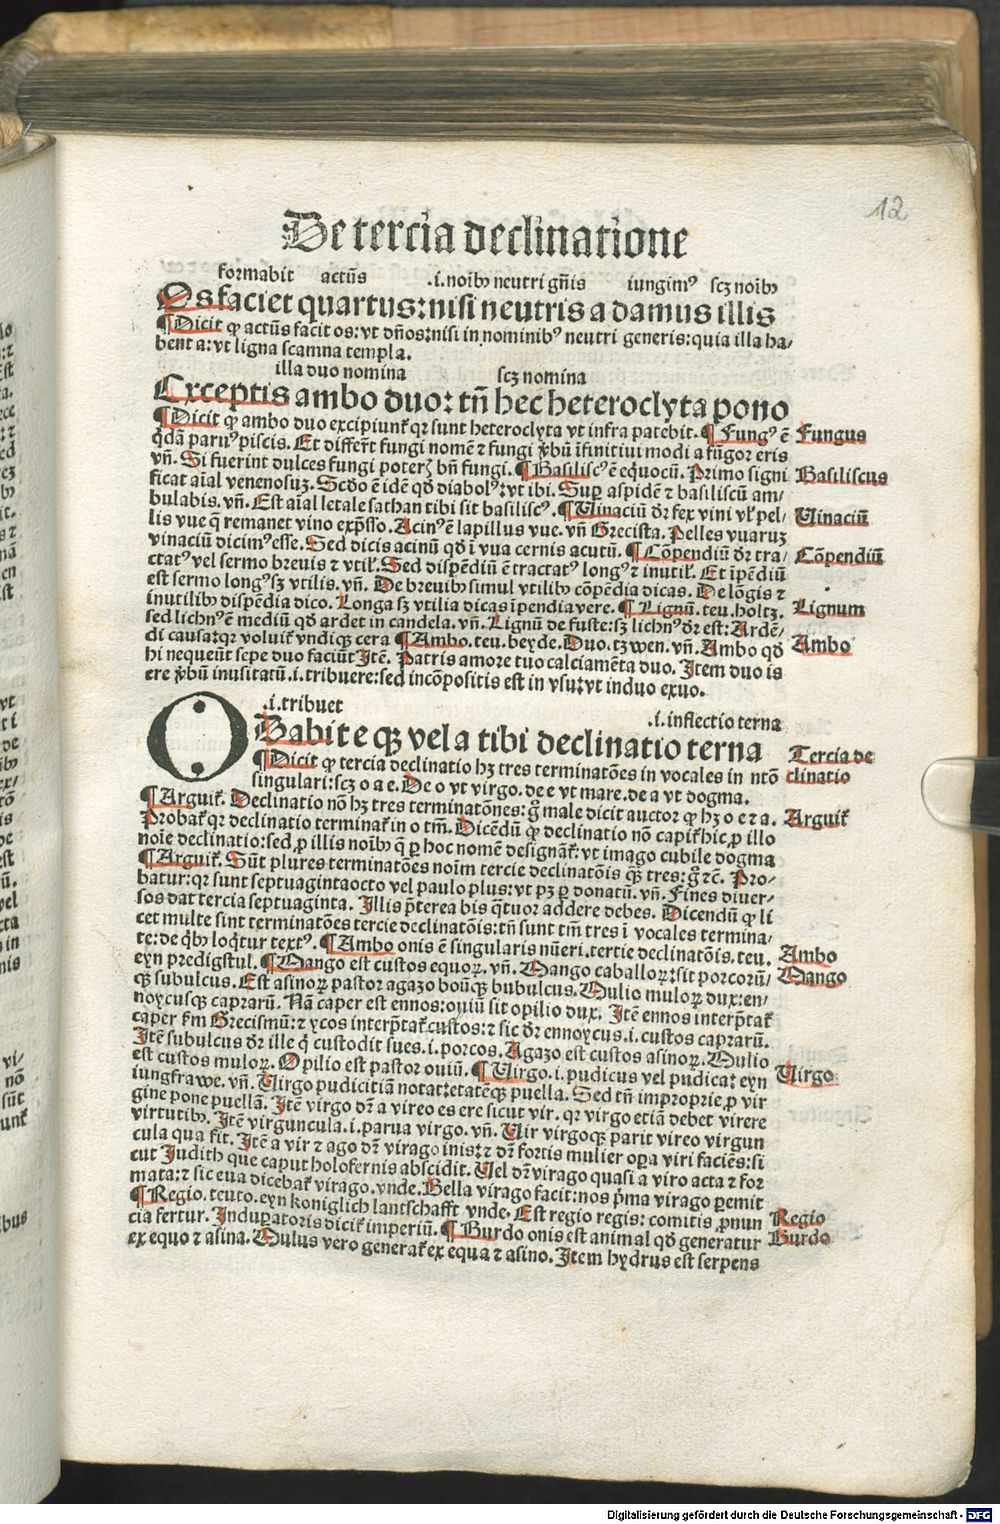 12
De tercia declinatione
formabit actũs .i. noibꝰ neutri gñis iungimꝰ scꝫ noibꝰ
Os faciet quartus: nisi neutris a damus illis
¶ Dicit ꝙ actũs facit os: vt dños: nisi in nominibꝰ neutri generis: quia illa ha/
bent a: vt ligna scamna templa.
illa duo nomina scꝫ nomina
Exceptis ambo duo: tñ hec heteroclyta pono
¶ Dicit ꝙ ambo duo excipiunt̃ qꝛ sunt heteroclyta vt infra patebit. ¶ Fungꝰ ē
Fungus
q̇dã paruꝰ piscis. Et differt̃ fungi nomē ⁊ fungi ꝟbũ ĩfinitiui modi a fũgor eris
vñ. Si fuerint dulces fungi poterꝫ bñ fungi. ¶ Basiliscꝰ ē equocũ. Primo signi
Basiliscus
ficat aĩal venenosuꝫ. Scďo ē idē qď diabolꝰ: vt ibi. Suꝑ aspidē ⁊ basiliscũ am/
bulabis. vñ. Est aĩal letale sathan tibi sit basiliscꝰ. ¶ Uinaciũ dꝛ fex vini vꝉ pel/
Uinaciũ
lis vue q̃ remanet vino exp̃sso. Acinꝰ ē lapillus vue. vñ Grecista. Pelles vuaruꝫ
vinaciũ dicimꝰ esse. Sed dicis acinũ qď ĩ vua cernis acutũ. ¶ Cõpendiũ dꝛ tra/
Cõpendiũ
ctatꝰ vel sermo breuis ⁊ vtiꝉ. Sed dispēdiũ ē tractatꝰ longꝰ ⁊ inutiꝉ. Et ĩpēdiũ
est sermo longꝰ sꝫ vtilis. vñ. De breuibꝰ simul vtilibꝰ cõpēdia dicas. De lõgis ⁊
inutilibꝰ dispēdia dico. Longa sꝫ vtilia dicas ĩpendia vere. ¶ Lignũ. teu. holtz.
Lignum
sed lichnꝰ ē mediũ qď ardet in candela. vñ. Lignũ de fuste: sꝫ lichnꝰ dꝛ est: Ardē/
di causa: qꝛ voluit̃ vndiqꝫ cera ¶ Ambo. teu. beyde. Duo. tzwen. vñ. Ambo qď
Ambo
hi nequeũt sepe duo faciũt Jtē. Patris amore tuo calciamēta duo. Jtem duo is
ere ꝟbũ inusitatũ .i. tribuere: sed incõpositis est in vsu: vt induo exuo.
.i. tribuet .i. inflectio terna
O
Dabit e qꝫ vel a tibi declinatio terna
Tercia de
clinatio
¶ Dicit ꝙ tercia declinatio hꝫ tres terminatões in vocales in ntõ
singulari: scꝫ o a e. De o vt virgo. de e vt mare. de a vt dogma.
¶ Arguit̃. Declinatio nõ hꝫ tres terminatões: g̊ male dicit auctor ꝙ hꝫ o e ⁊ a.
Arguit̃
Probat̃ qꝛ declinatio terminat̃ in o tm̃. Dicēdũ ꝙ declinatio nõ capit̃ hic ꝓ illo
noĩe declinatio: sed ꝓ illis noĩbꝰ q̃ ꝑ hoc nomē designãt̃: vt imago cubile dogma
¶ Arguit̃. Sũt plures terminatões noĩm tercie declinatõis qꝫ tres: g̊ ⁊c̃. Pro-
batur: qꝛ sunt septuagintaocto vel paulo plus: vt pꝫ ꝑ donatũ. vñ. Fines diuer-
sos dat tercia septuaginta. Illis p̃terea bis q̃tuoꝛ addere debes. Dicendũ ꝙ li
cet multe sint terminatões tercie declinatõis: tñ sunt tm̃ tres ĩ vocales termina/
te: de q̇bꝰ loq̃tur textꝰ. ¶ Ambo onis ē singularis nũeri. tertie declinatõis. teu.
Ambo
eyn predigstul. ¶ Mango est custos equoꝝ. vñ. Mango caballoꝝ: sit porcorũ/
Mango
qꝫ subulcus. Est asinoꝝ pastor agazo boũqꝫ bubulcus. Mulio muloꝝ dux: en/
noycusqꝫ caprarũ. Nã caper est ennos: ouiũ sit opilio dux. Jtē ennos interp̃tat̃
caper ẜm Grecismũ: ⁊ ycos interp̃tat̃ custos: ⁊ sic dꝛ ennoycus .i. custos caprarũ.
Jtē subulcus dꝛ ille q̇ custodit sues .i. porcos. Agazo est custos asinoꝝ. Mulio
est custos muloꝝ. Opilio est pastor ouiũ. ¶ Uirgo .i. pudicus vel pudica: eyn
Uirgo
iungfrawe. vñ. Uirgo pudicitiã notat: etatēqꝫ puella. Sed tñ improprie ꝓ vir
gine pone puellã. Jtē virgo dꝛ̃ a vireo es ere sicut vir. qꝛ virgo etiã debet virere
virtutibꝰ. Jtē virguncula .i. parua virgo. vñ. Uir virgoqꝫ parit vireo virgun
cula qua fit. Jtē a vir ⁊ ago dꝛ̃ virago inis: ⁊ dꝛ̃ fortis mulier oꝑa viri faciēs: si
cut Judith que caput holofernis abscidit. Uel dꝛ̃ virago quasi a viro acta ⁊ for
mata: ⁊ sic eua dicebat̃ virago. vnde. Bella virago facit: nos p̃ma virago ꝑemit
¶ Regio. teuto. eyn koniglich lantschafft vnde. Est regio regis: comitis ꝓuun
Regio
cia fertur. Induꝑatoris dicit̃ imperiũ. ¶ Burdo onis est animal qď generatur
Burdo
ex equo ⁊ asina. Mulus vero generat̃ ex equa ⁊ asino. Jtem hydrus est serpens
Digitalisierung gefördert durch die Deutsche Forschungsgemeinschaft - DFG